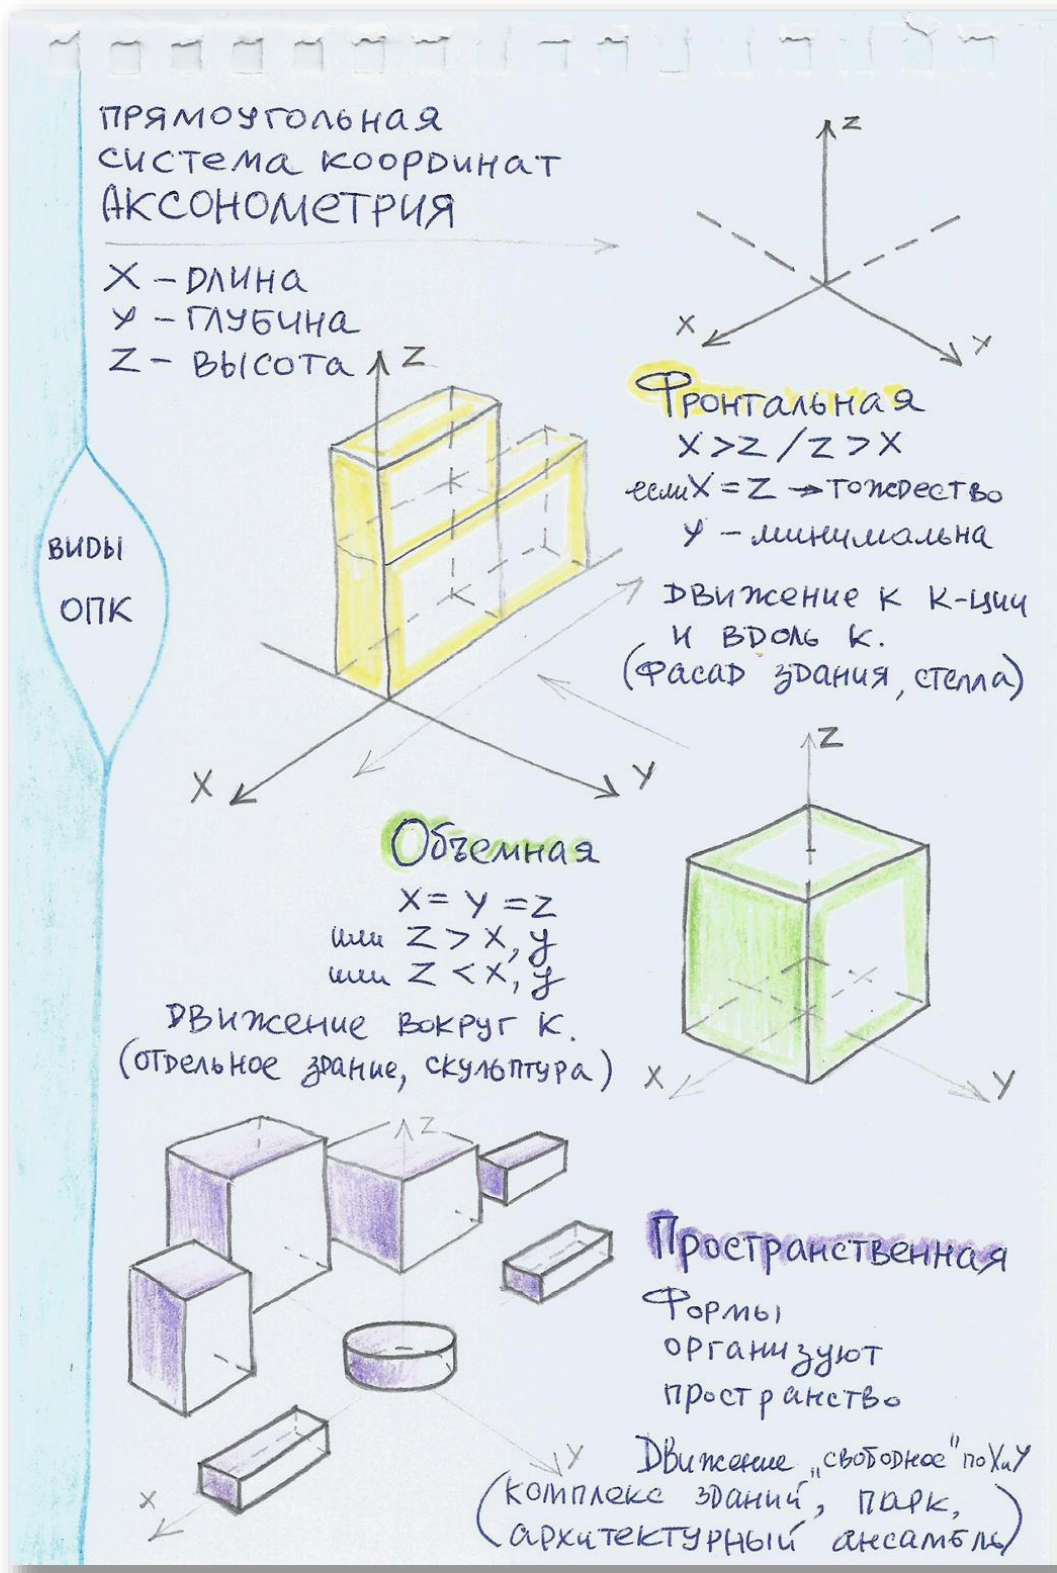 ПРЯМОУГОЛЬНАЯ
СИСТЕМА КООРДИНАТ
АКСОНОМЕТРИЯ
X – ДЛИНА
У – ГЛУБИНА
Z – ВЫСОТА
Z
X
У
Z
X
У
ВИДЫ
ОПК
Фронтальная
X > Z / Z > X
если X = Z → тождество
У – минимальна
Движение к к-ции
и вдоль к.
(фасад здания, стелла)
Объемная
X = У = Z
или Z > X, у
или Z < X, у
Движение вокруг к.
(отдельное здание, скульптура)
Z
X
У
Z
X
У
Пространственная
Формы
организуют
пространство
Движение „свободное" по X и У
(комплекс зданий, парк,
архитектурный ансамбль)